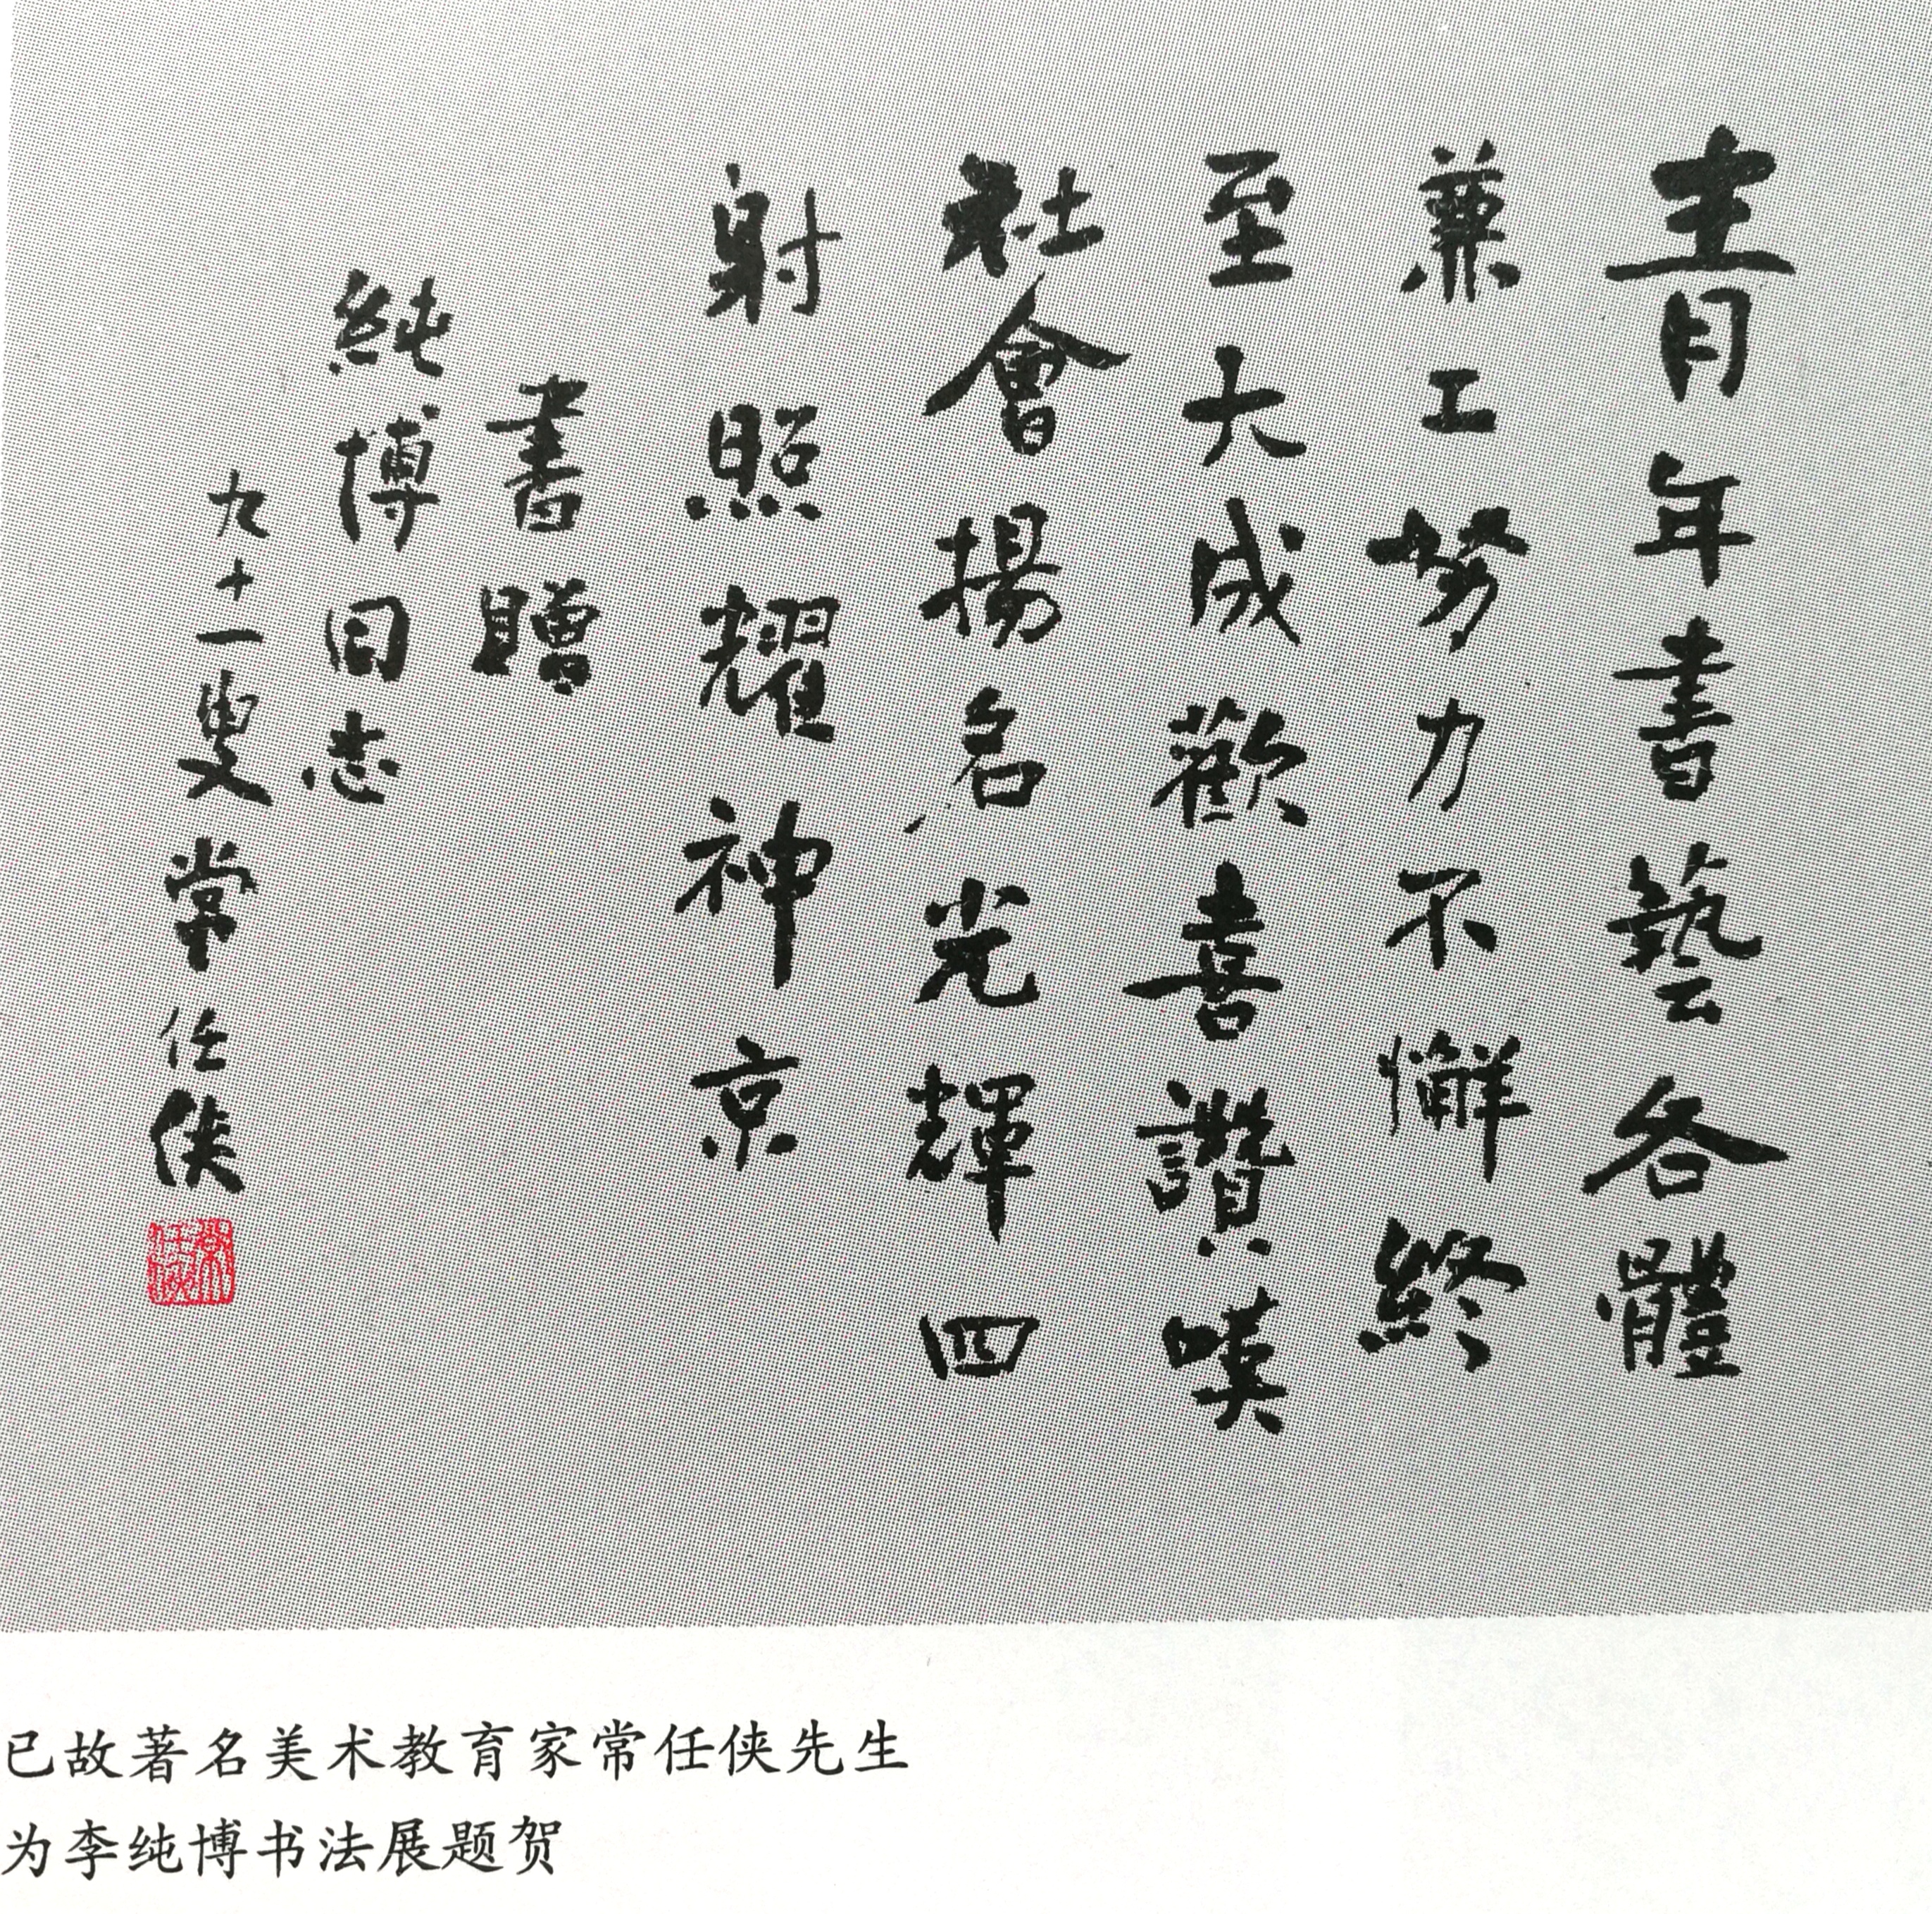 青年書藝各體
兼工努力不懈終
至大成歡喜讚嘆
社會揚名光輝四
射照耀神京
書贈
純博同志
九十一叟常任俠
常任俠
已故著名美术教育家常任侠先生
为李纯博书法展题贺